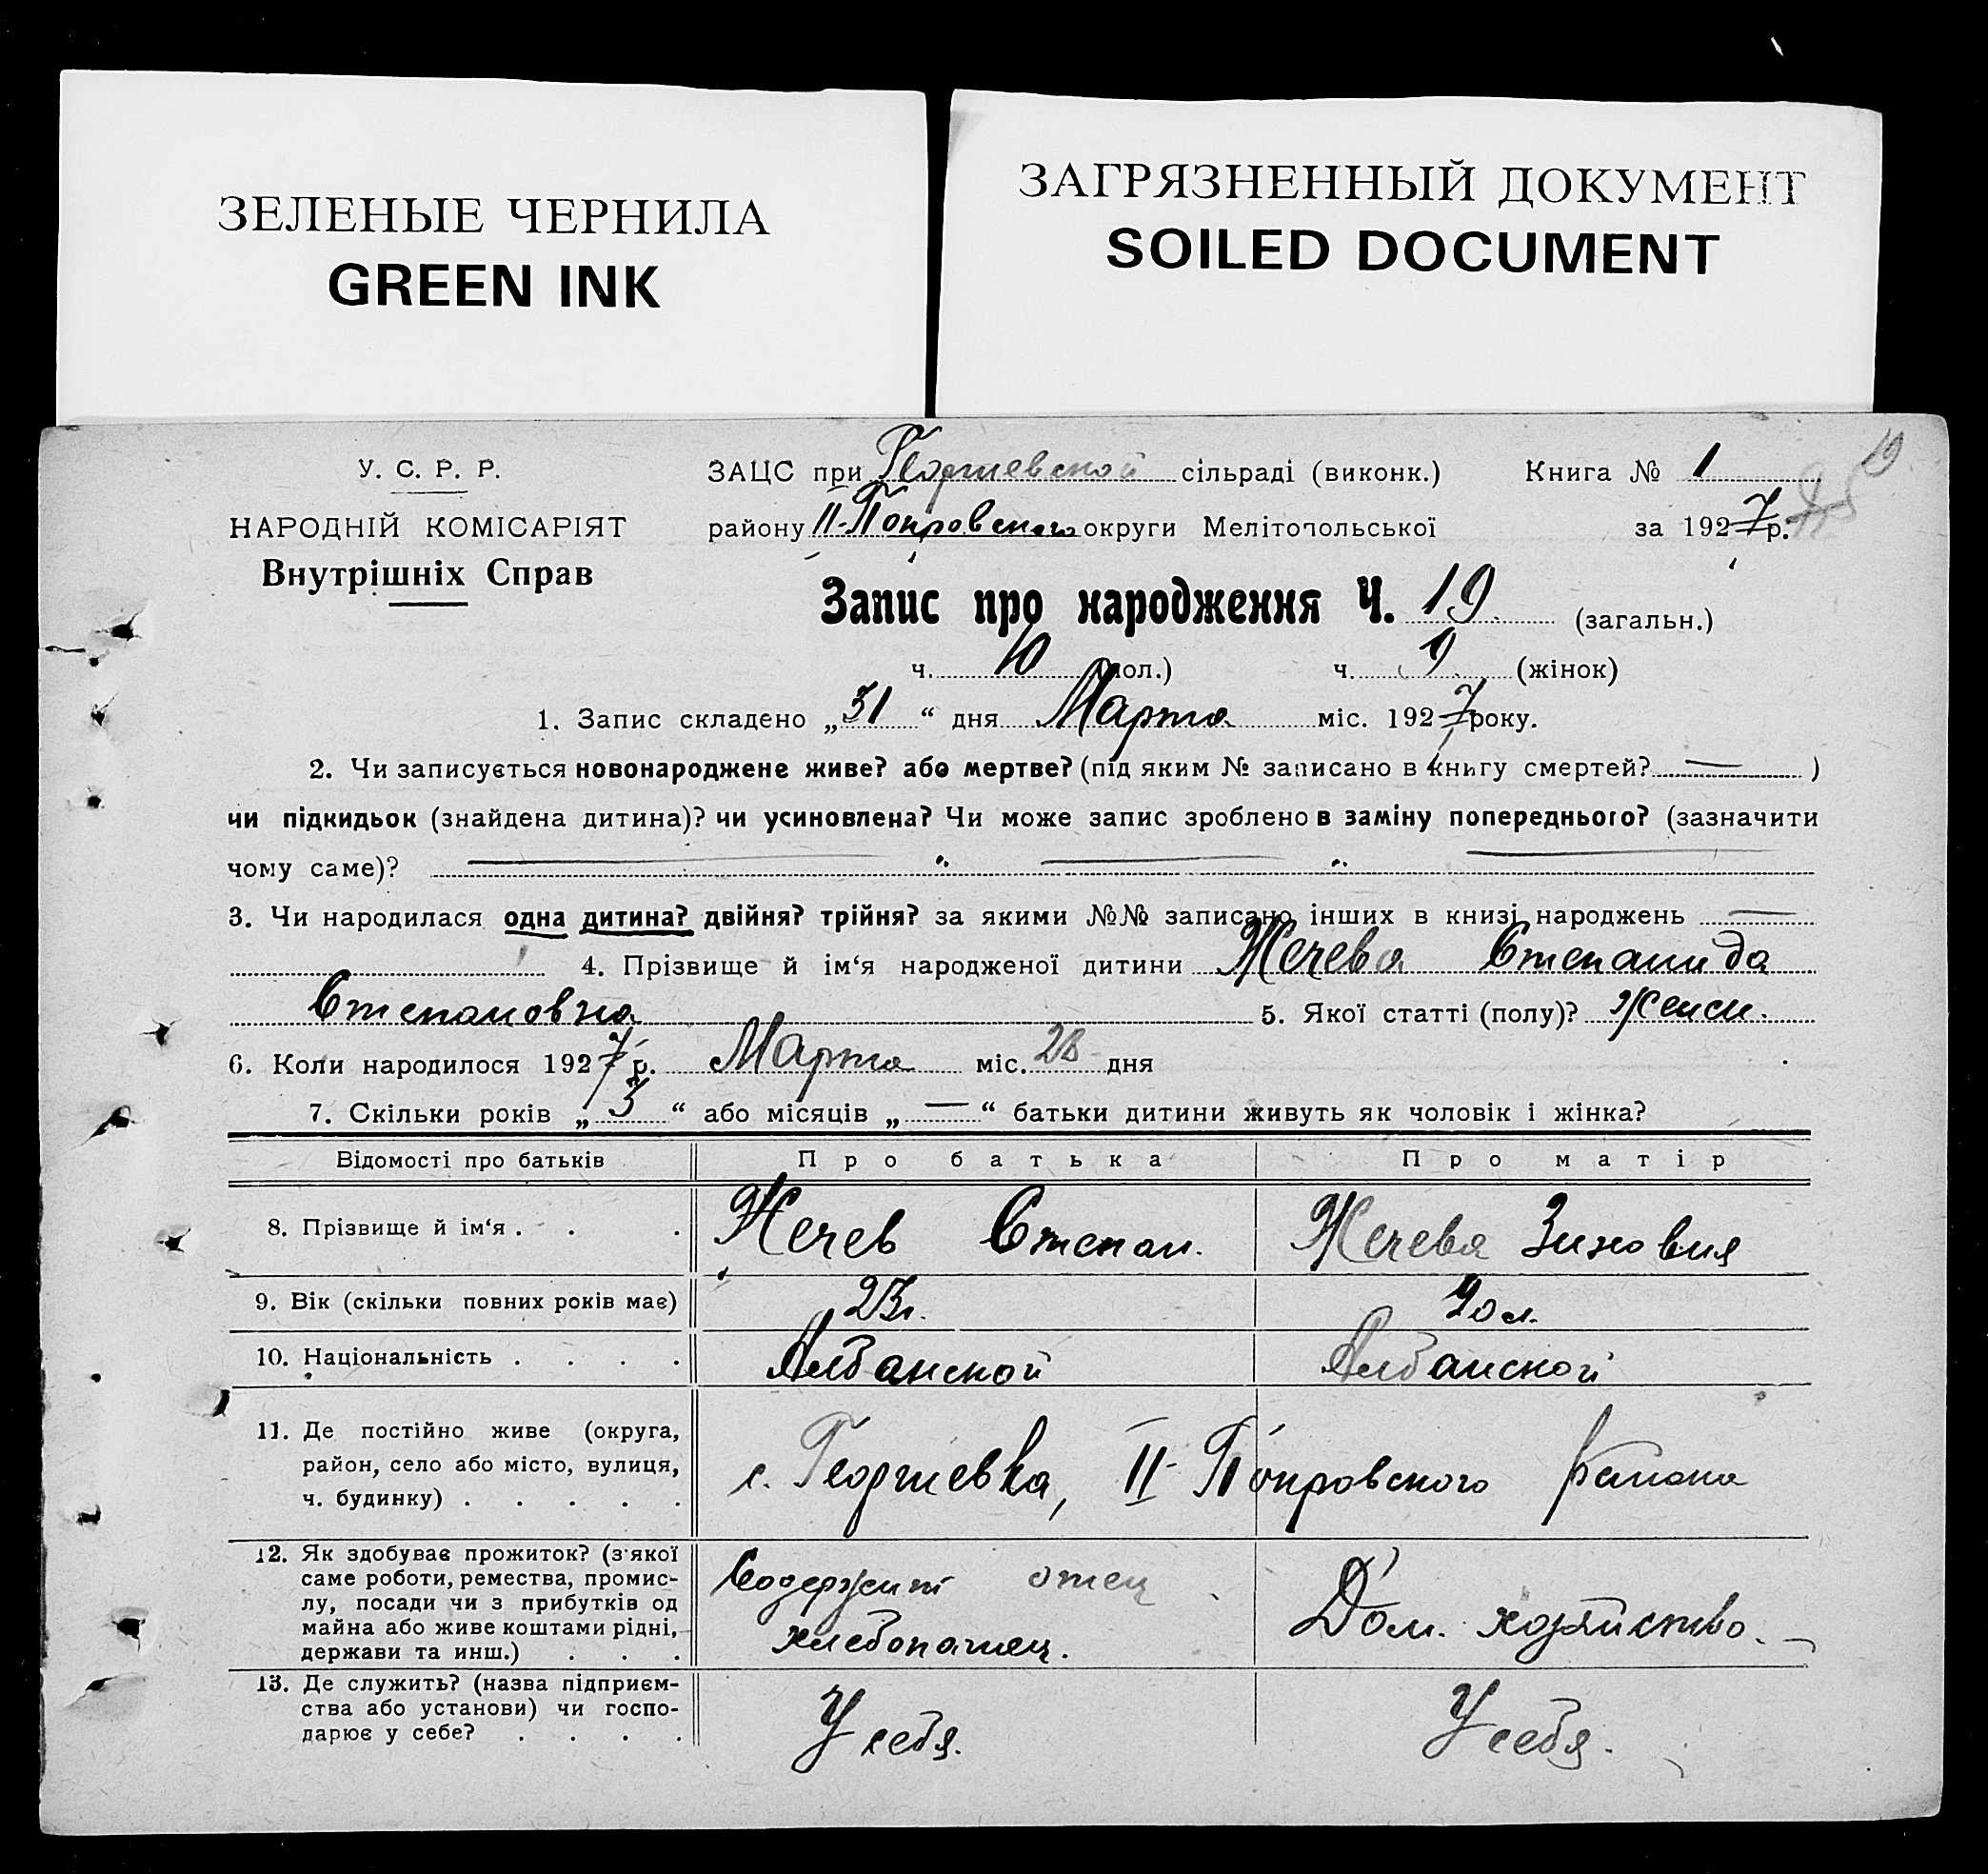 ЗЕЛЕНЫЕ ЧЕРНИЛА
GREEN INK
ЗАГРЯЗНЕННЫЙ ДОКУМЕНТ
SOILED DOCUMENT
У. С. Р. Р.
НАРОДНІЙ КОМІСАРІЯТ
Внутрішніх Справ
ЗАЦС при Георгиевской сільраді (виконк.) Книга № 1
19
району II-Покровского округи Мелітопольської за 1927 р.
Запис про народження Ч. 19 (загальн.)
ч. 10 (чол.) ч. 9 (жінок)
1. Запис складено „31“ дня Марта міс. 1927 року.
2. Чи записується новонароджене живе? або мертве? (під яким № записано в книгу смертей? — )
чи підкидьок (знайдена дитина)? чи усиновлена? Чи може запис зроблено в заміну попереднього? (зазначити
чому саме)? — „ — „ —
3. Чи народилася одна дитина? двійня? трійня? за якими №№ записано інших в книзі народжень —
4. Прізвище й ім‘я народженої дитини Жечева Степанида
Степановна 5. Якої статті (полу)? Женск.
6. Коли народилося 1927 р. Марта міс. 28 дня
7. Скільки років „3“ або місяців „—“ батьки дитини живуть як чоловік і жінка?
Відомості про батьків Про батька Про матір
8. Прізвище й ім‘я . . . Жечев Степан. Жечева Зиновия
9. Вік (скільки повних років має) 23 г. 20 л.
10. Національність . . . . Албанской Албанской
11. Де постійно живе (округа,
район, село або місто, вулиця,
ч. будинку) . . . . .
с. Георгиевка, II-Покровского района
12. Як здобуває прожиток? (з якої
саме роботи, ремества, промис-
лу, посади чи з прибутків од
майна або живе коштами рідні,
держави та инш.) . . .
Содержит отец
хлебопашец.
Дом. хозяйство.
13. Де служить? (назва підприєм-
ства або установи) чи госпо-
дарює у себе? . . . .
У себя.
У себя.